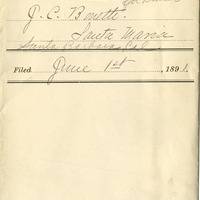 J. C. Bonette.
Santa Maria
Santa Barbara, Cal
Filed June 1st, 1891.